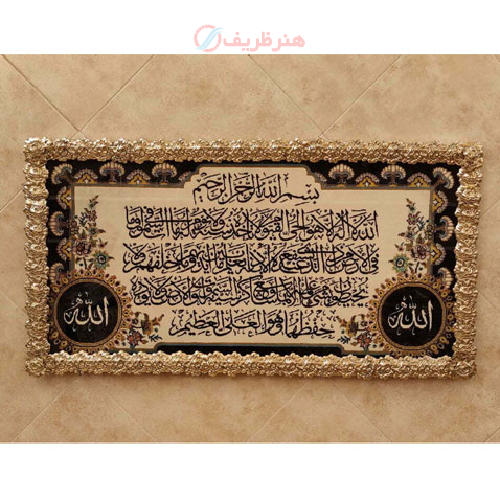 هنر ظریف
بسم الله الرحمن الرحیم
الله لا اله الا هو الحی القیوم لا تاخذه سنة و لا نوم له ما فی السموات و ما
فی الارض من ذا الذی یشفع عنده الا باذنه یعلم ما بین ایدیهم و ما خلفهم و لا
یحیطون بشیء من علمه الا بما شاء وسع کرسیه السموات و الارض و لا یؤده
حفظهما و هو العلی العظیم
الله
الله